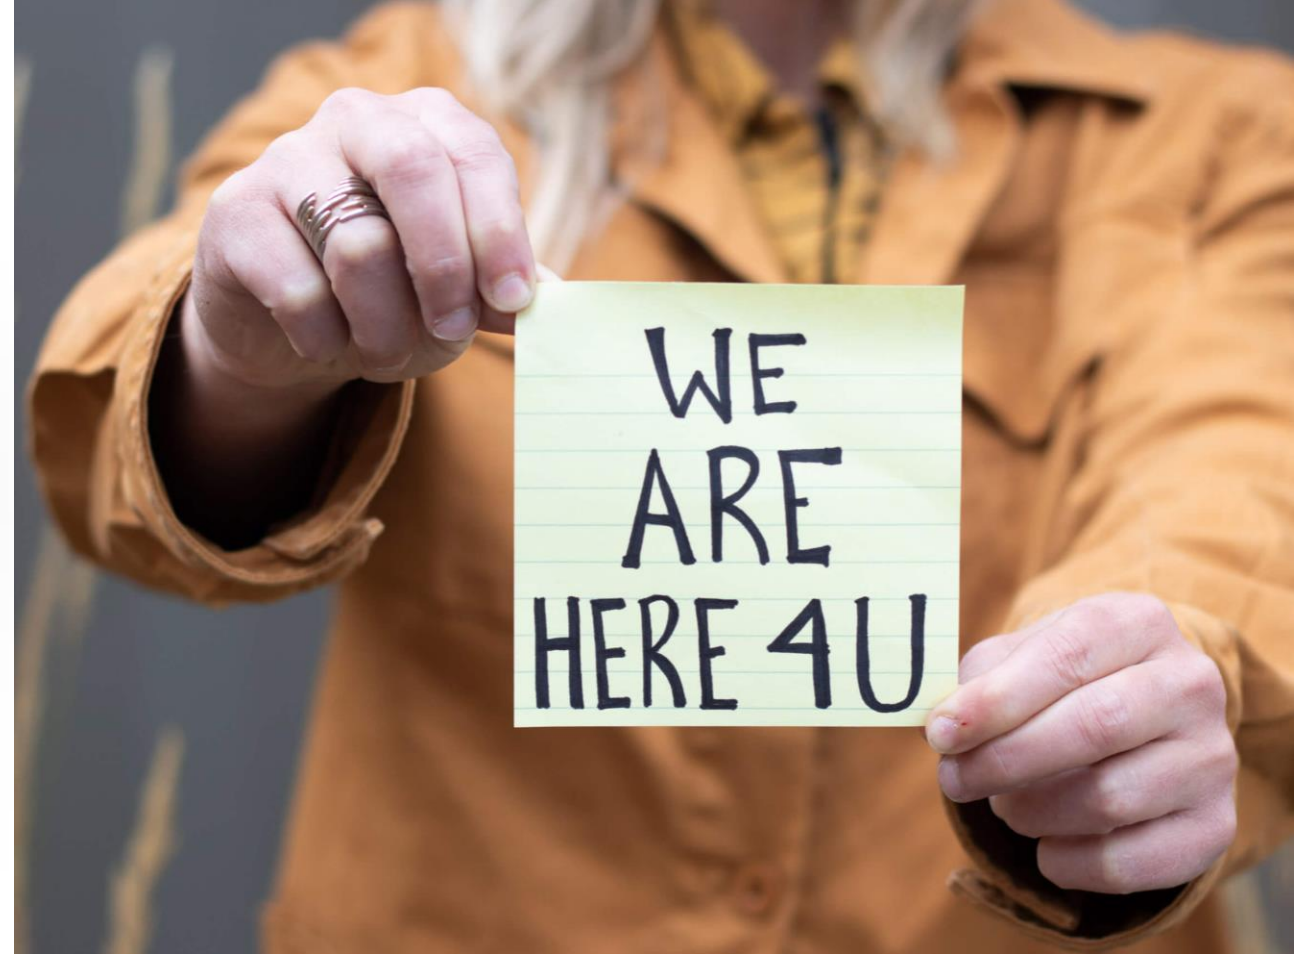 WE
ARE
HERE 4U